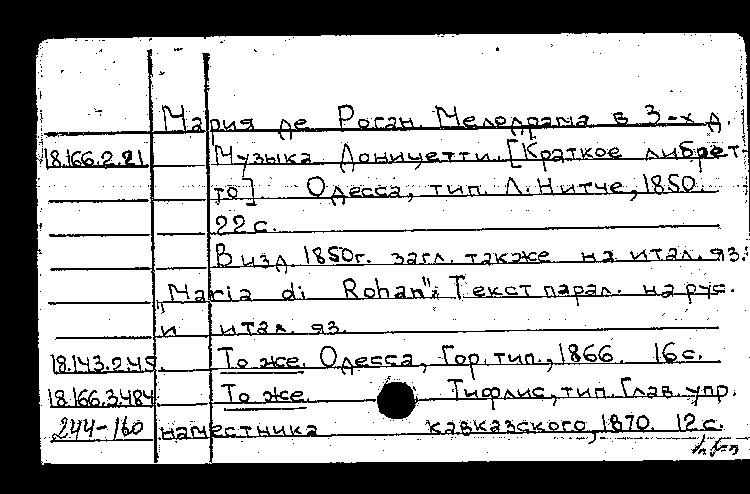 Мария де Роган. Мелодрама в 3-х д.
18.166.2.21 Музыка Доницетти. [Краткое либрет-
то] Одесса, тип. Л. Нитче, 1850.
22 с.
В изд. 1850г. загл. также на итал. яз.:
"Maria di Rohan"; Текст парал. на рус.
и итал. яз.
18.143.2.45. То же. Одесса, Гор. тип., 1866. 16 с.
18.166.3.484 То же. Тифлис, тип. Глав. упр.
244-160 наместника кавказского, 1870. 12 с.